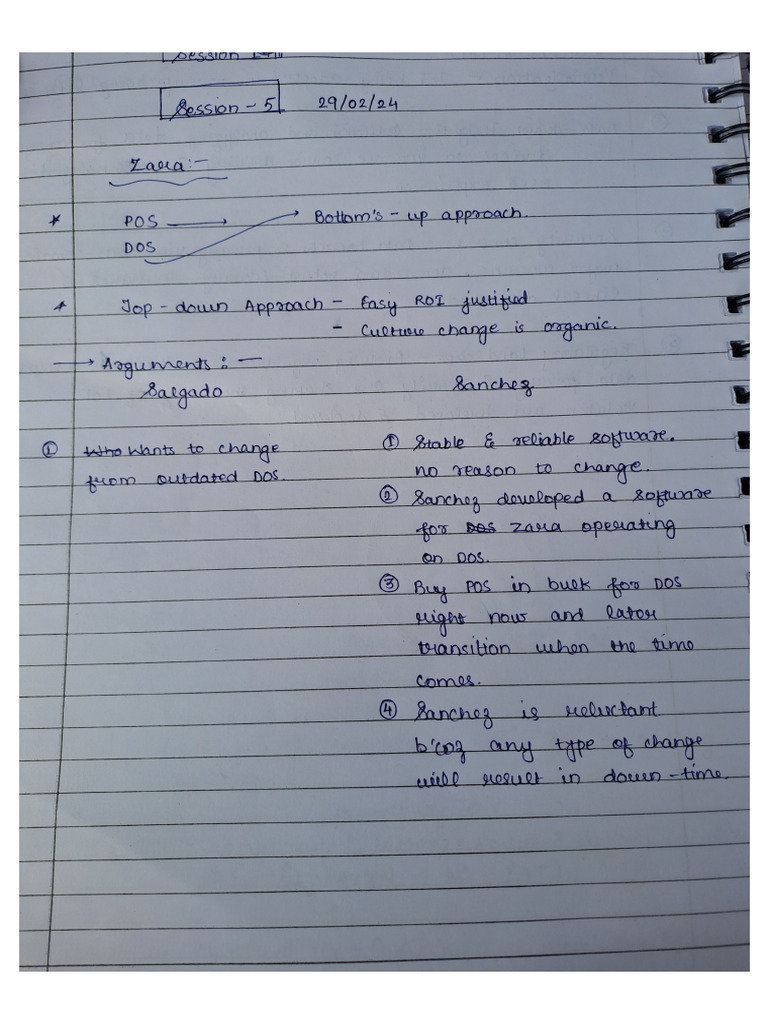 Session
Session - 5 29/02/24
Zara:-
* POS → Bottom's - up approach.
DOS
* Top - down Approach - Easy ROI justified
- Culture change is organic.
→ Arguments : -
Salgado Sanchez
① Who Wants to change
from outdated DOS.
① Stable & reliable software.
no reason to change.
② Sanchez developed a software
for DOS Zara operating
on DOS.
③ Buy POS in bulk for DOS
right now and later
transition when the time
comes.
④ Sanchez is reluctant
b'coz any type of change
will result in down-time.